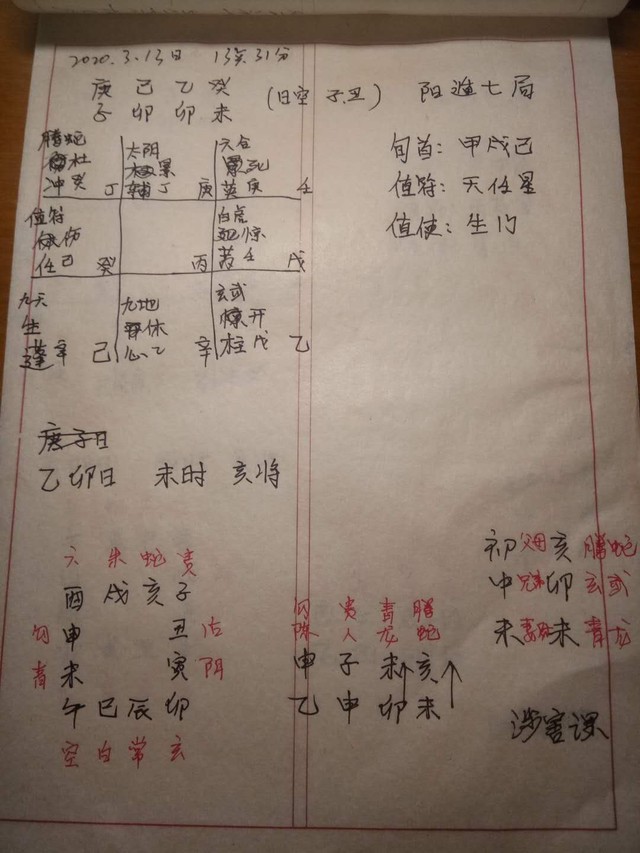 2020.3.13日 13点31分
庚 己 乙 癸
子 卯 卯 未
(日空 子.丑)
阳遁七局
旬首: 甲戌己
值符: 天任星
值使: 生门
腾蛇 太阴 六合
杜 景 死
冲癸 丁 辅丁 庚 芮庚 壬
值符 白虎
伤 惊
任己 癸 丙 壬 戊
九天 九地 玄武
生 休 开
蓬辛 己 心乙 辛 柱戊 乙
庚子日
乙卯日 未时 亥将
六 朱 蛇 贵
酉 戌 亥 子
勾 申 丑 后
青 未 寅 阴
午 巳 辰 卯
空 白 常 玄
勾陈 贵人 青龙 腾蛇
申 子 未 亥
乙 申 卯 未
初 父母 亥 腾蛇
中 兄弟 卯 玄武
末 妻财 未 青龙
涉害课